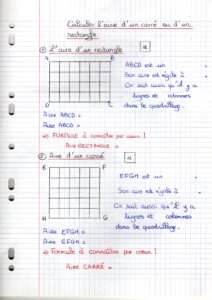 Calculer l'aire d'un carré ou d'un
rectangle
① L'aire d'un rectangle
u
A B
ABCD est un
Son aire est égale à
On sait aussi qu'il y a
lignes et colonnes
dans le quadrillage.
D C
Aire ABCD =
Aire ABCD =
⇒ FORMULE à connaître par cœur !
Aire RECTANGLE =
② Aire d'un carré
u
E F
EFGH est un
Son aire est égale à
On sait aussi qu'il y a
lignes et colonnes
dans le quadrillage.
H G
Aire EFGH =
Aire EFGH =
⇒ Formule à connaître par cœur !
Aire CARRÉ =